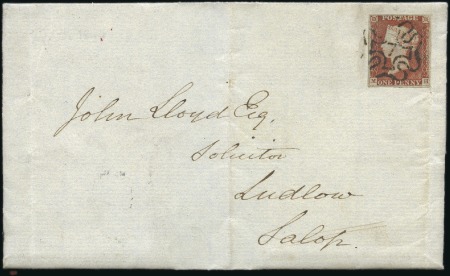 POSTAGE
ONE PENNY
John Lloyd Esq.
Solicitor
Ludlow
Salop.